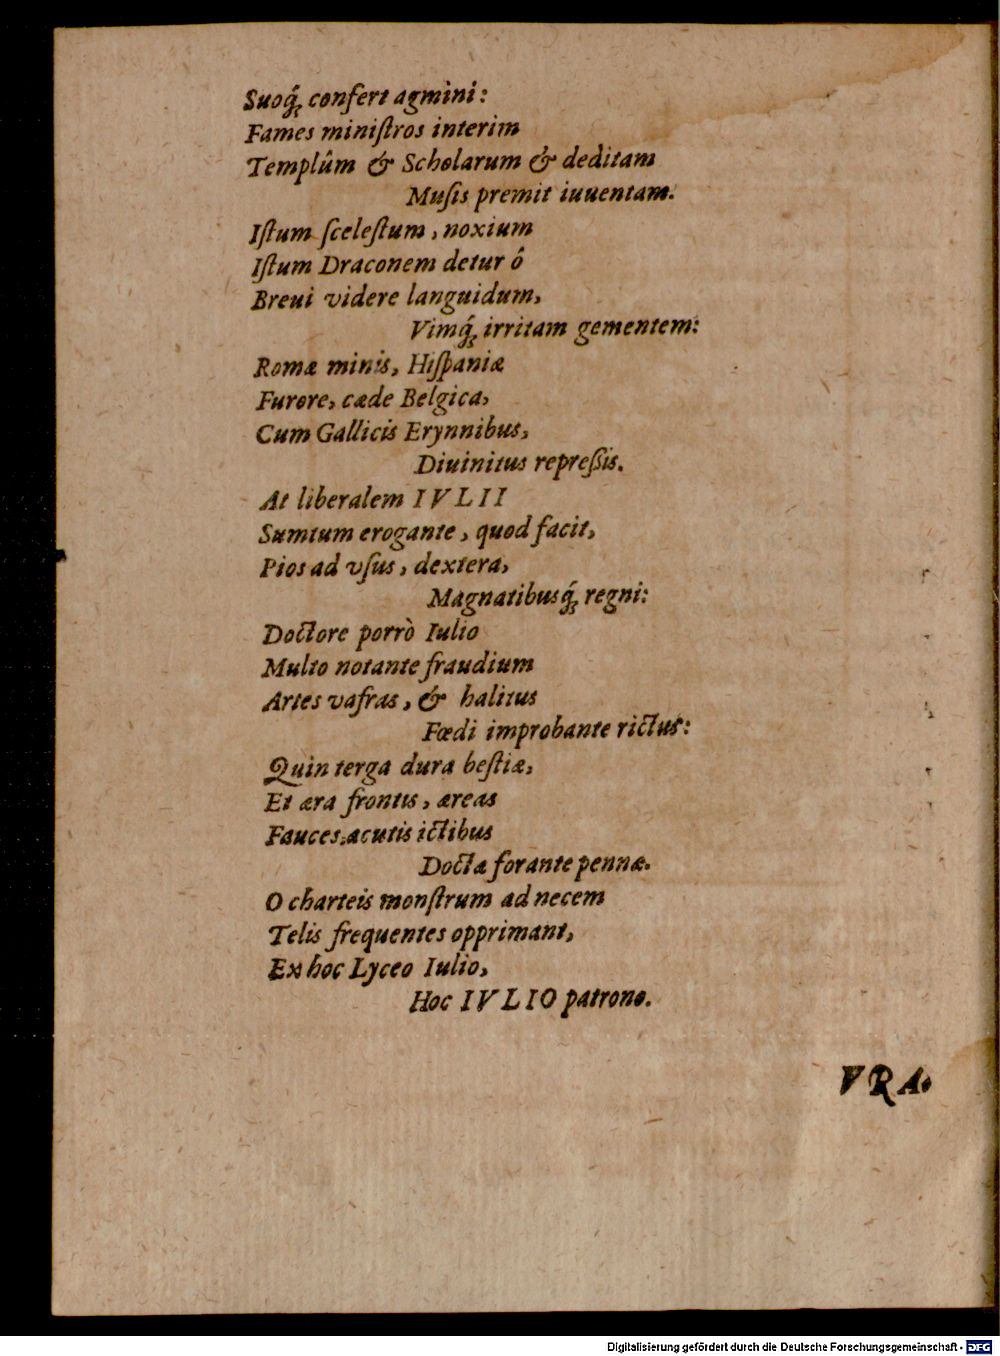 Suoq́ꝫ confert agmini:
Fames miniſtros interim
Templûm & Scholarum & deditam
Muſis premit iuuentam.
Iſtum ſceleſtum, noxium
Iſtum Draconem detur ô
Breui videre languidum,
Vimq́ꝫ irritam gementem:
Romæ minis, Hiſpaniæ
Furore, cæde Belgica,
Cum Gallicis Erynnibus,
Diuinitus repreſsis.
At liberalem IVLII
Sumtum erogante, quod facit,
Pios ad vſus, dextera,
Magnatibusq́ꝫ regni:
Doctore porrò Iulio
Multo notante fraudium
Artes vafras, & halitus
Fœdi improbante rictus:
Quin terga dura beſtiæ,
Et æra frontis, æreas
Fauces acutis ictibus
Docta forante pennæ.
O charteis monſtrum ad necem
Telis frequentes opprimant,
Ex hoc Lyceo Iulio,
Hoc IVLIO patrono.
VRA.
Digitalisierung gefördert durch die Deutsche Forschungsgemeinschaft - DFG